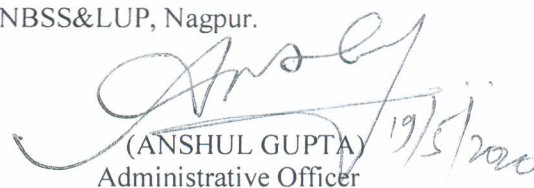 NBSS&LUP, Nagpur.
Ansh
19/5/2020
(ANSHUL GUPTA)
Administrative Officer